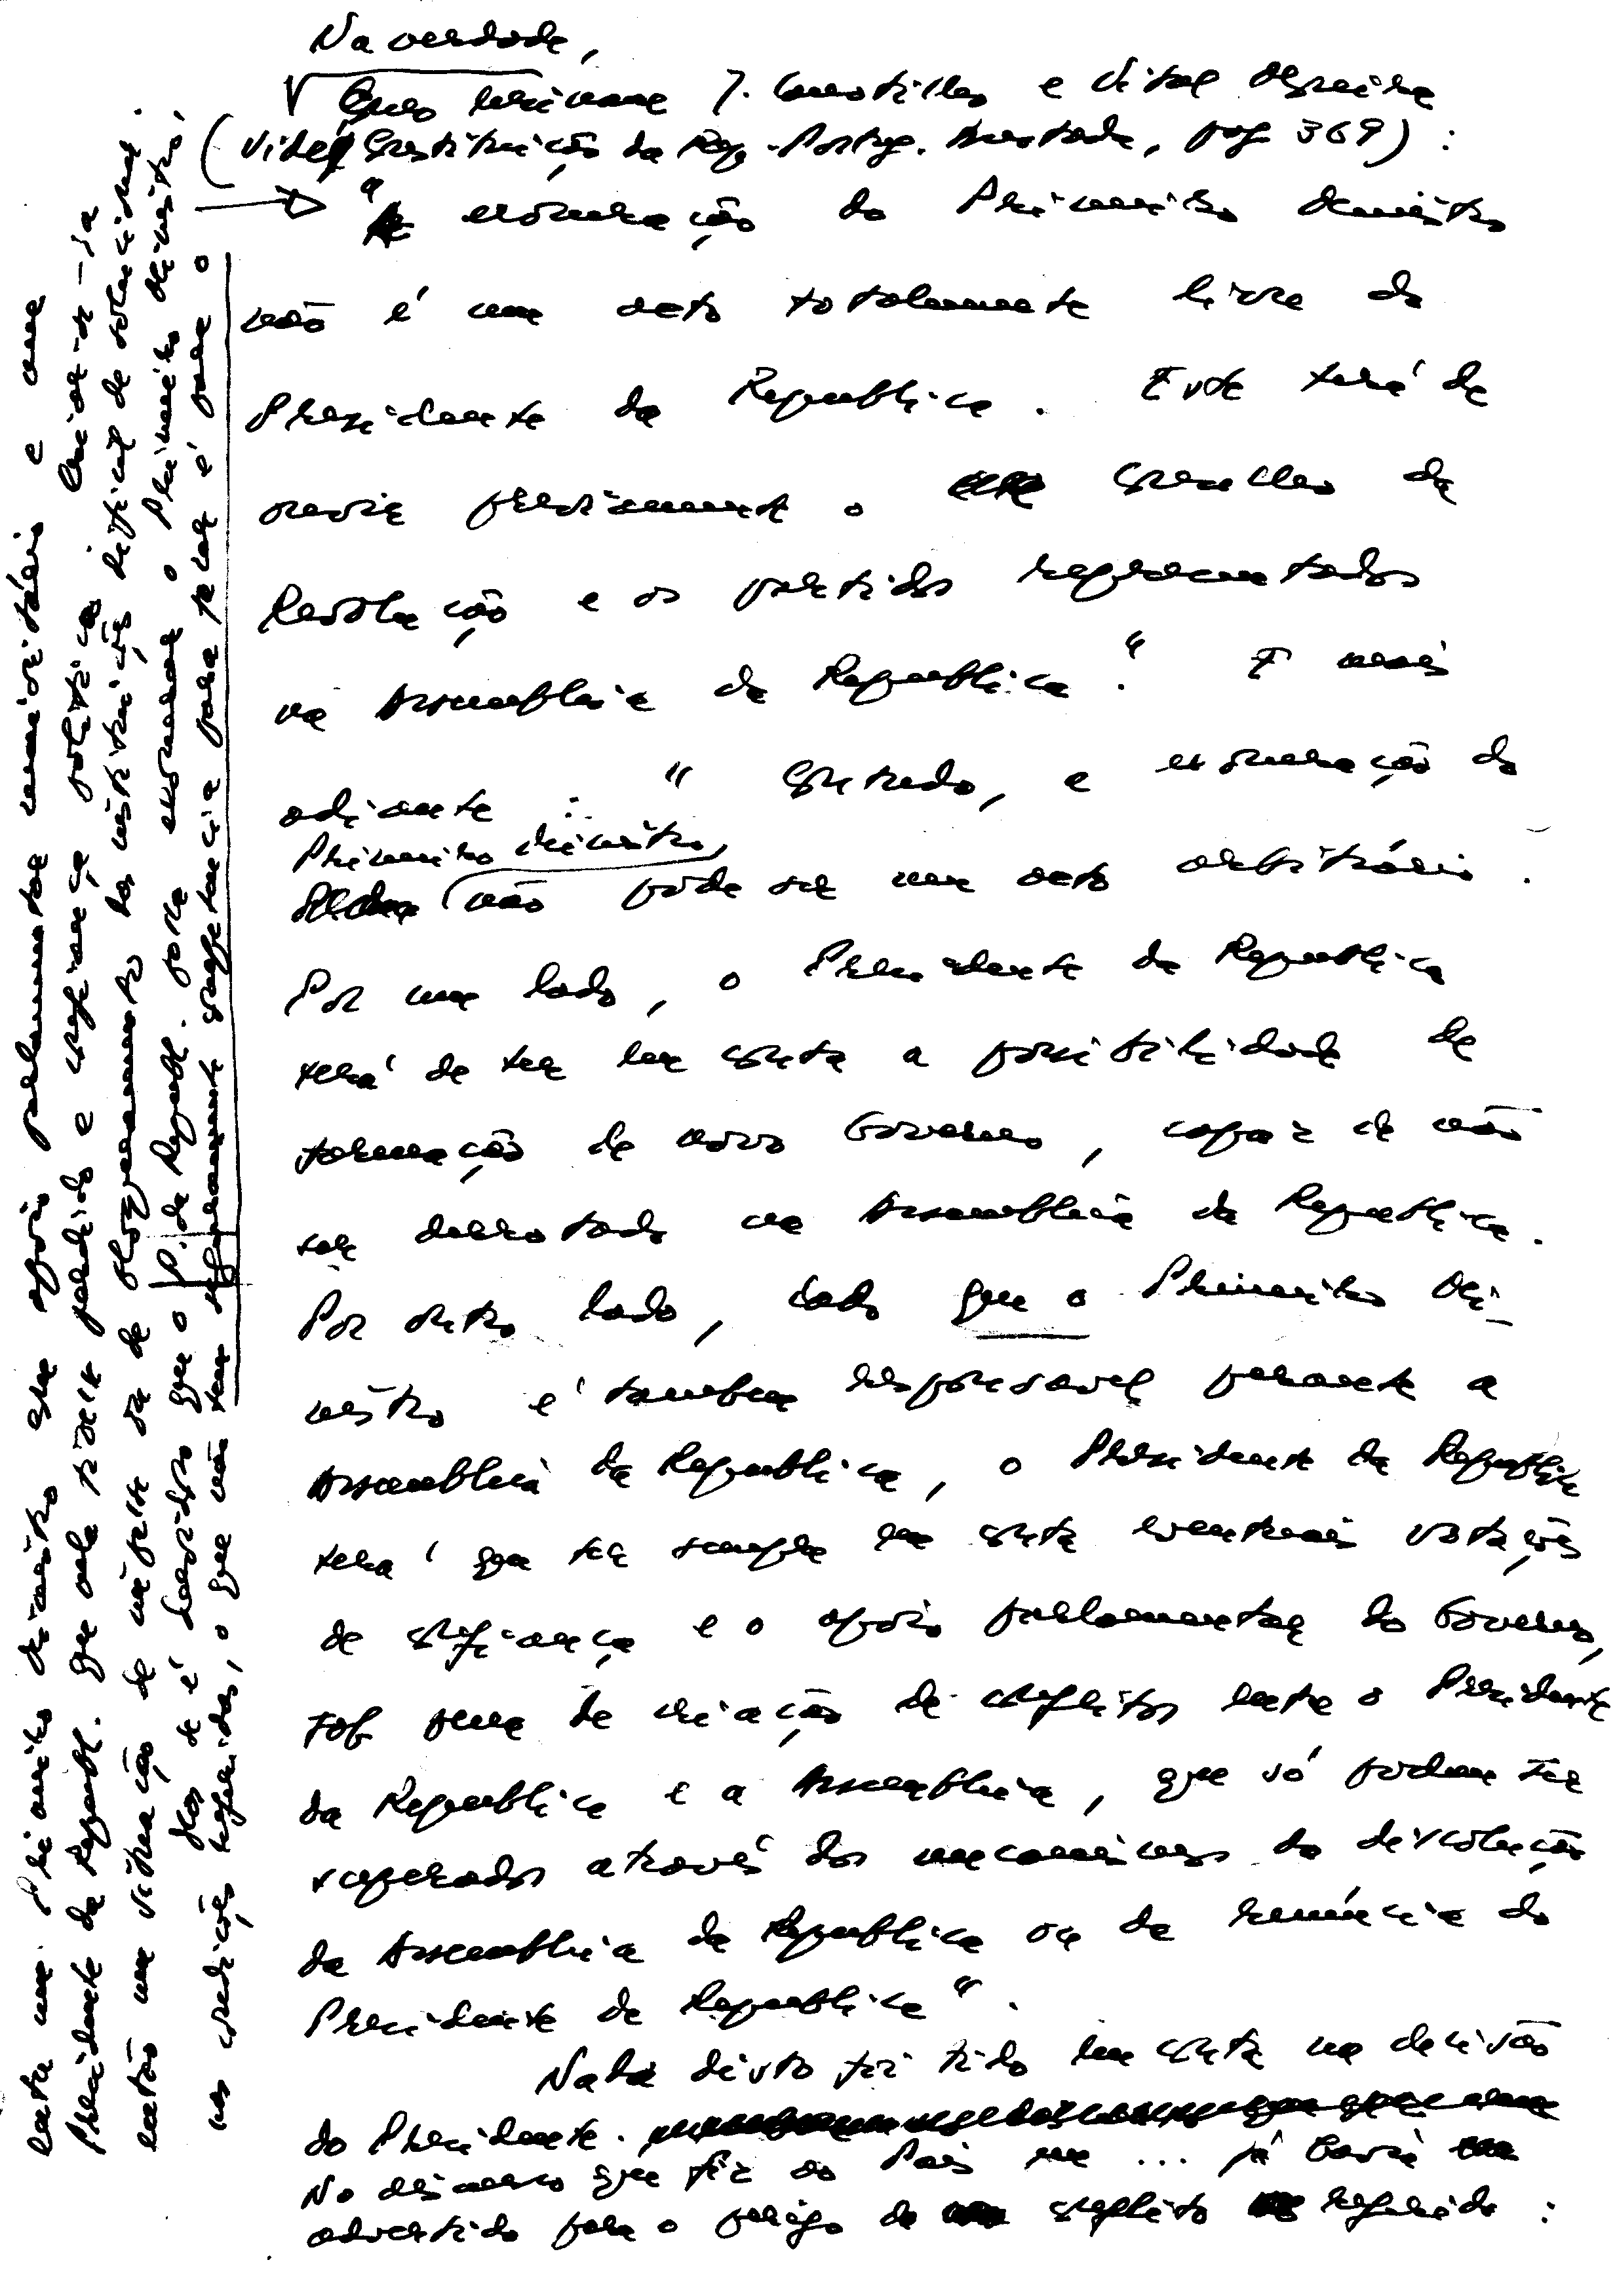 Na verdade,
Como lecionam J. Canotilho e Vital Moreira
(vide Constituição da Rep. Portug. Anotada, pag 369) :
"A exoneração do Primeiro Ministro
não é um acto totalmente livre do
Presidente da Republica. Este terá de
ouvir previamente o Conselho da
Revolução e os partidos representados
na Assembleia da Republica." E mais
adiante : "Contudo, a exoneração do
Primeiro Ministro,
não pode ser um acto arbitrário.
Por um lado, o Presidente da Republica
terá de ter em conta a possibilidade de
formação de novo Governo, capaz de não
ser derrotado na Assembleia da Republica.
Por outro lado, dado que o Primeiro Mi-
nistro é tambem responsavel perante a
Assembleia da Republica, o Presidente da Republica
terá que ter sempre em conta eventuais votações
de confiança e o apoio parlamentar do Governo,
sob pena de criação de conflitos entre o Presidente
da Republica e a Assembleia, que só podem ser
superados através dos mecanismos da dissolução
da Assembleia da Republica ou da renúncia do
Presidente da Republica".
Nada disto foi tido em conta na decisão
do Presidente.
No discurso que fez ao Pais em ... já havia
advertido para o perigo do conflito referido :
entre um Primeiro Ministro com apoio parlamentar maioritário e um
Presidente da Republ. que nele tivesse perdido a confiança politica. Criar-se-ia
então uma situação de impasse ou de bloqueamento das instituições dificil de solucionar.
Mas se é verdade que o P. da Republ. pode exonerar o Primeiro Ministro,
nas condições referidas, o que não tem seguramente competencia para fazer é para o